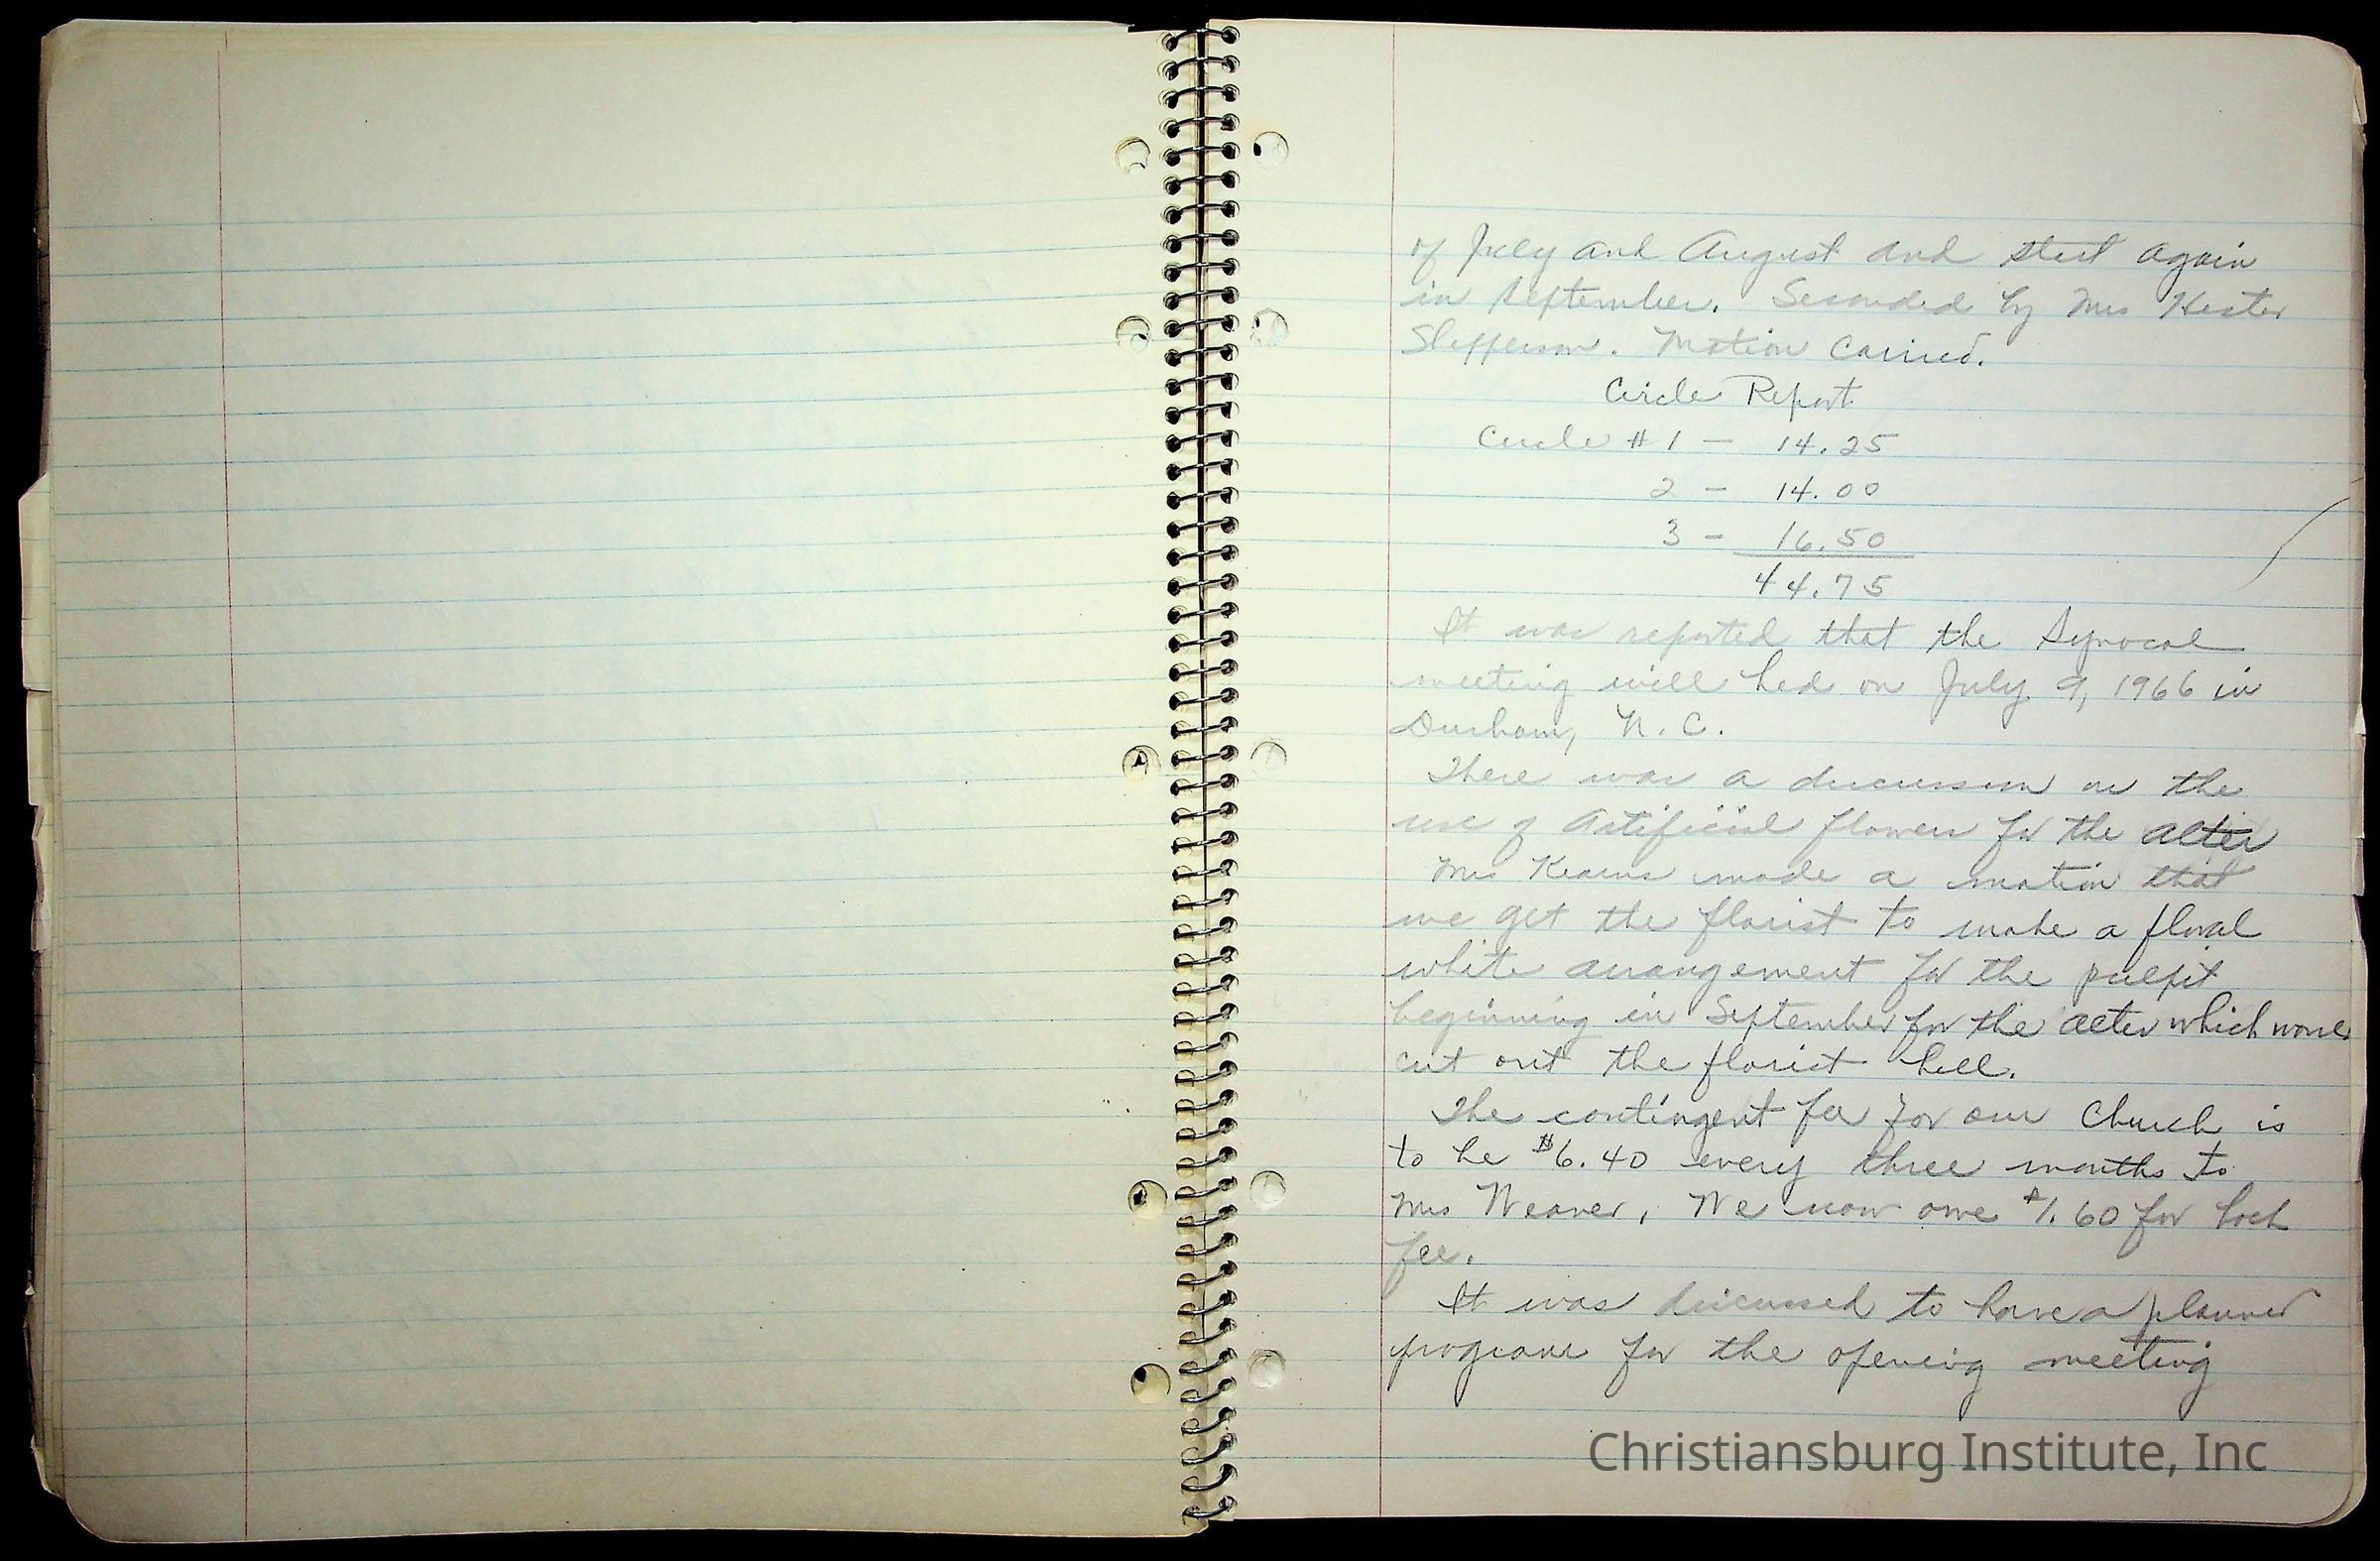 of July and August and start again
in September. Seconded by Mrs Hester
Motion Carried.
Circle Report
Circle # 1 - 14.25
2 - 14.00
3 - 16.50
44.75
It was reported that the Synocal
meeting will hed on July 9, 1966 in
Durham, N. C.
There was a discussion on the
use of Artificial flowers for the alter
Mrs Kearns made a motion that
we get the florist to make a floral
white arrangement for the pulpit
beginning in September for the alter which would
cut out the florist bill.
The contingent fee for our Church is
to be $6.40 every three months to
Mrs Weaver, We now owe $1.60 for back
fee.
It was discussed to have a planned
program for the opening meeting
Christiansburg Institute, Inc